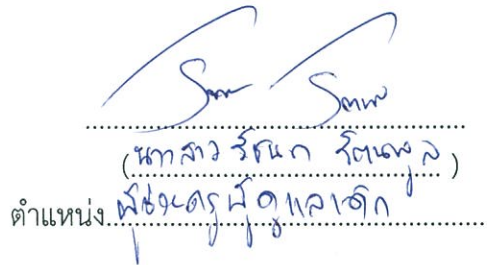 (นางสาว รัชนก รัตนพูล)
ตำแหน่ง ผู้ช่วยครูผู้ดูแลเด็ก